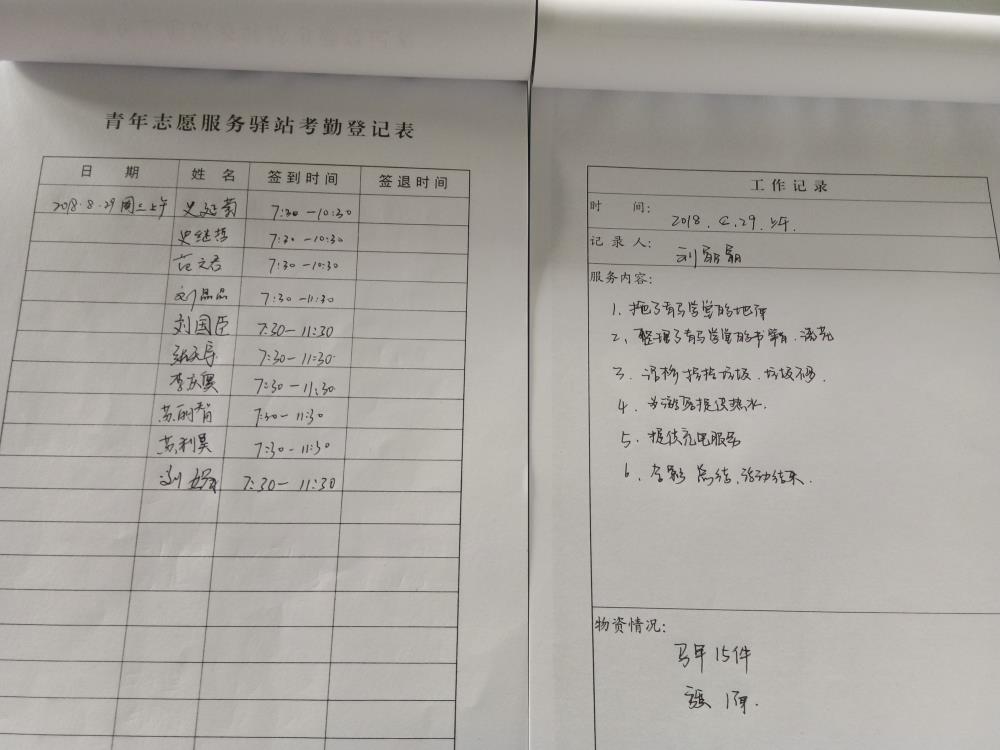 青年志愿服务驿站考勤登记表
日 期 姓 名 签到时间 签退时间
2018.8.29 周三上午 史延菊 7:30-10:30
史继哲 7:30-10:30
范文君 7:30-10:30
刘晶晶 7:30-11:30
刘国臣 7:30-11:30
7:30-11:30
李庆昊 7:30-11:30
苏丽智 7:30-11:30
苏利昊 7:30-11:30
刘 7:30-11:30
工作记录
时 间: 2018. .29.上午.
记录人: 刘
服务内容:
1. 拖了 学堂的地面
2、整理了 学堂的书籍、
3. 捡垃圾、垃圾
4. 为游客提供热水.
5. 提供充电服务
6. 合影 总结、活动结束.
物资情况:
马甲 15件
1